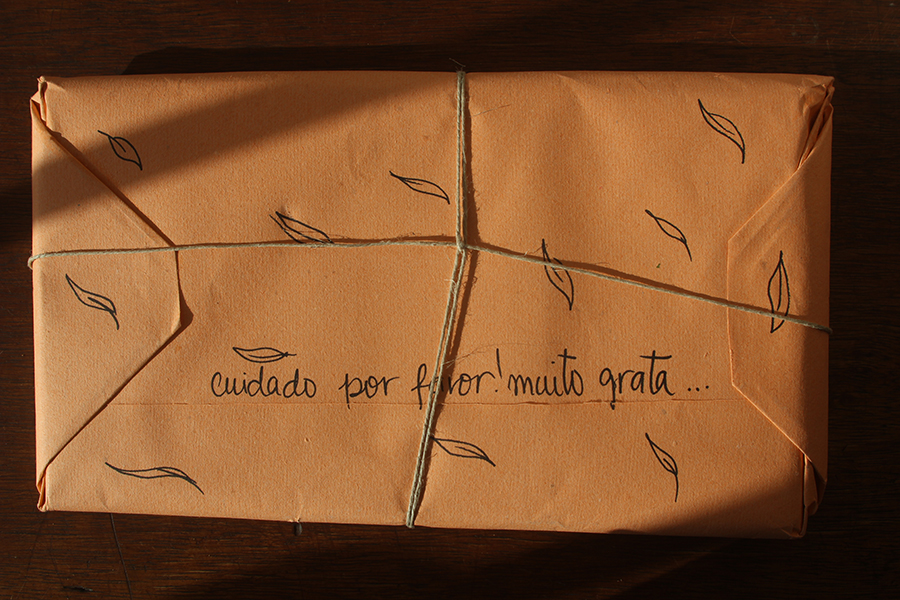 cuidado por favor! muito grata ...